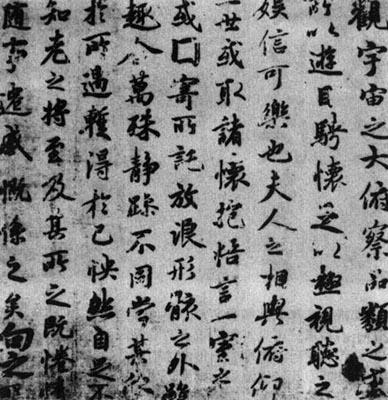 觀宇宙之大俯察品類之盛
所以遊目騁懷足以極視聽之
娛信可樂也夫人之相與俯仰
一世或取諸懷抱悟言一室之
或因寄所託放浪形骸之外雖
趣舍萬殊靜躁不同當其欣
於所遇輒得於己怏然自足不
知老之將至及其所之既惓情
隨事遷感慨係之矣向之所